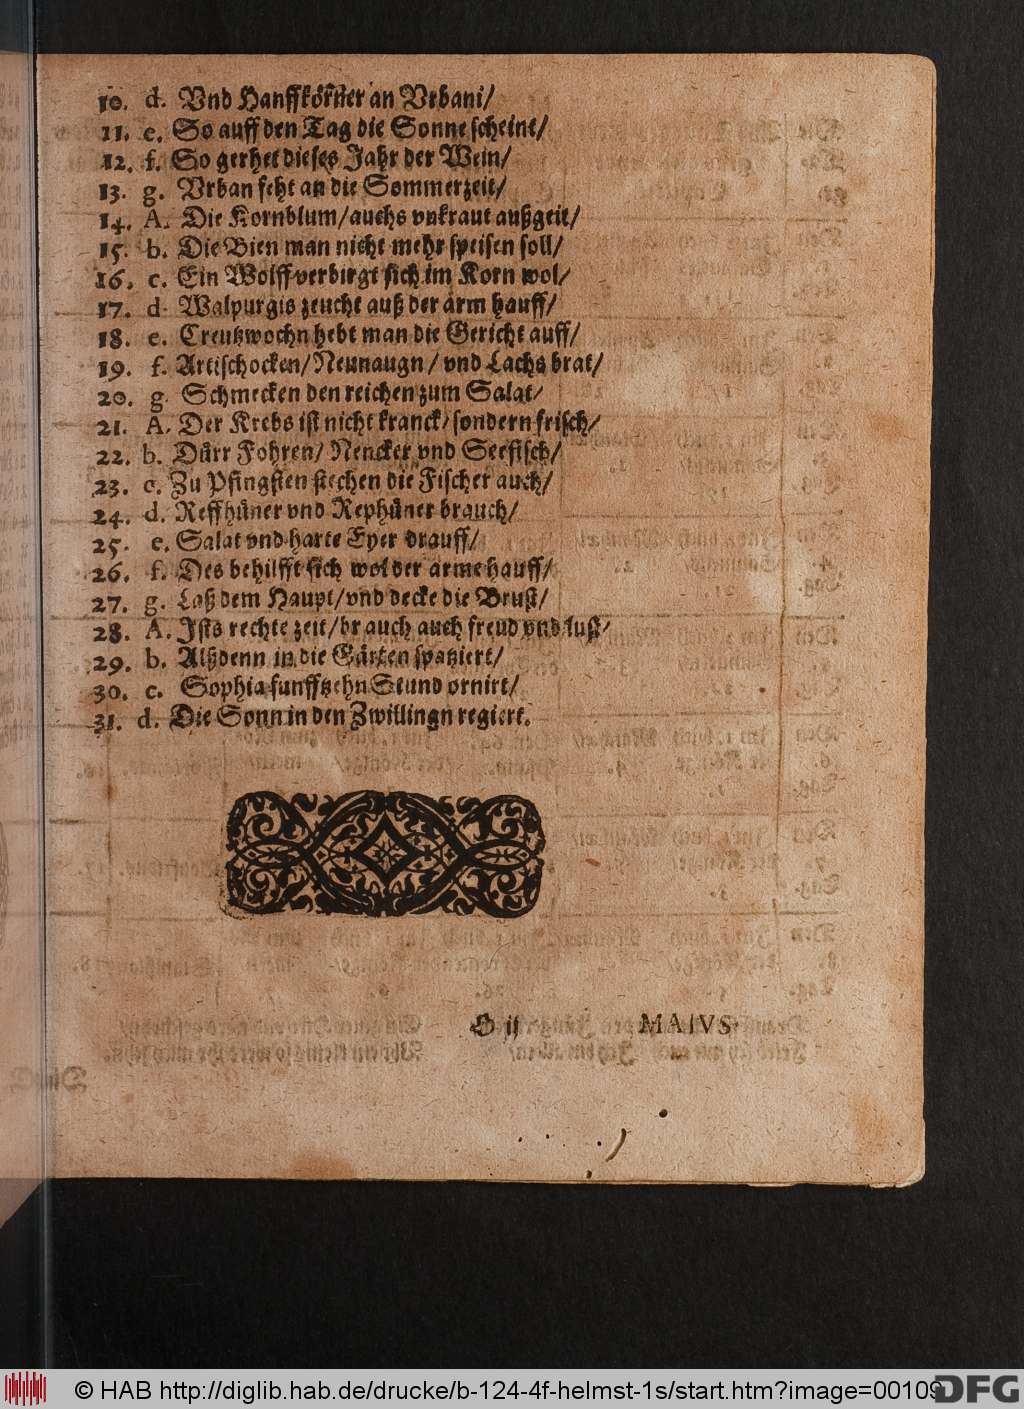 10. d. Vnd Hanffkörner an Vrbani/
11. e. So auff den Tag die Sonne scheint/
12. f. So gerhet dieses Jahr der Wein/
13. g. Vrban feht an die Sommerzeit/
14. A. Die Kornblum/auchs vnkraut außgeit/
15. b. Die Bien man nicht mehr speisen soll/
16. c. Ein Wolff verbirgt sich im Korn wol/
17. d. Walpurgis zeucht auß der arm hauff/
18. e. Creutzwochn hebt man die Gericht auff/
19. f. Artischocken/Neunaugn/vnd Lachs brat/
20. g. Schmecken den reichen zum Salat/
21. A. Der Krebs ist nicht kranck/sondern frisch/
22. b. Dürr Fohren/Nencker vnd Seefisch/
23. c. Zu Pfingsten stechen die Fischer auch/
24. d. Reffhüner vnd Rephüner brauch/
25. e. Salat vnd harte Eyer drauff/
26. f. Des behilfft sich wol der arme hauff/
27. g. Laß dem Haupt/vnd decke die Brust/
28. A. Ists rechte zeit/brauch auch freud vnd lust/
29. b. Alßdenn in die Gärten spatziert/
30. c. Sophia funfftzehn Stund ornirt/
31. d. Die Sonn in den Zwillingn regiert.
O ij MAIVS
© HAB http://diglib.hab.de/drucke/b-124-4f-helmst-1s/start.htm?image=00109
DFG